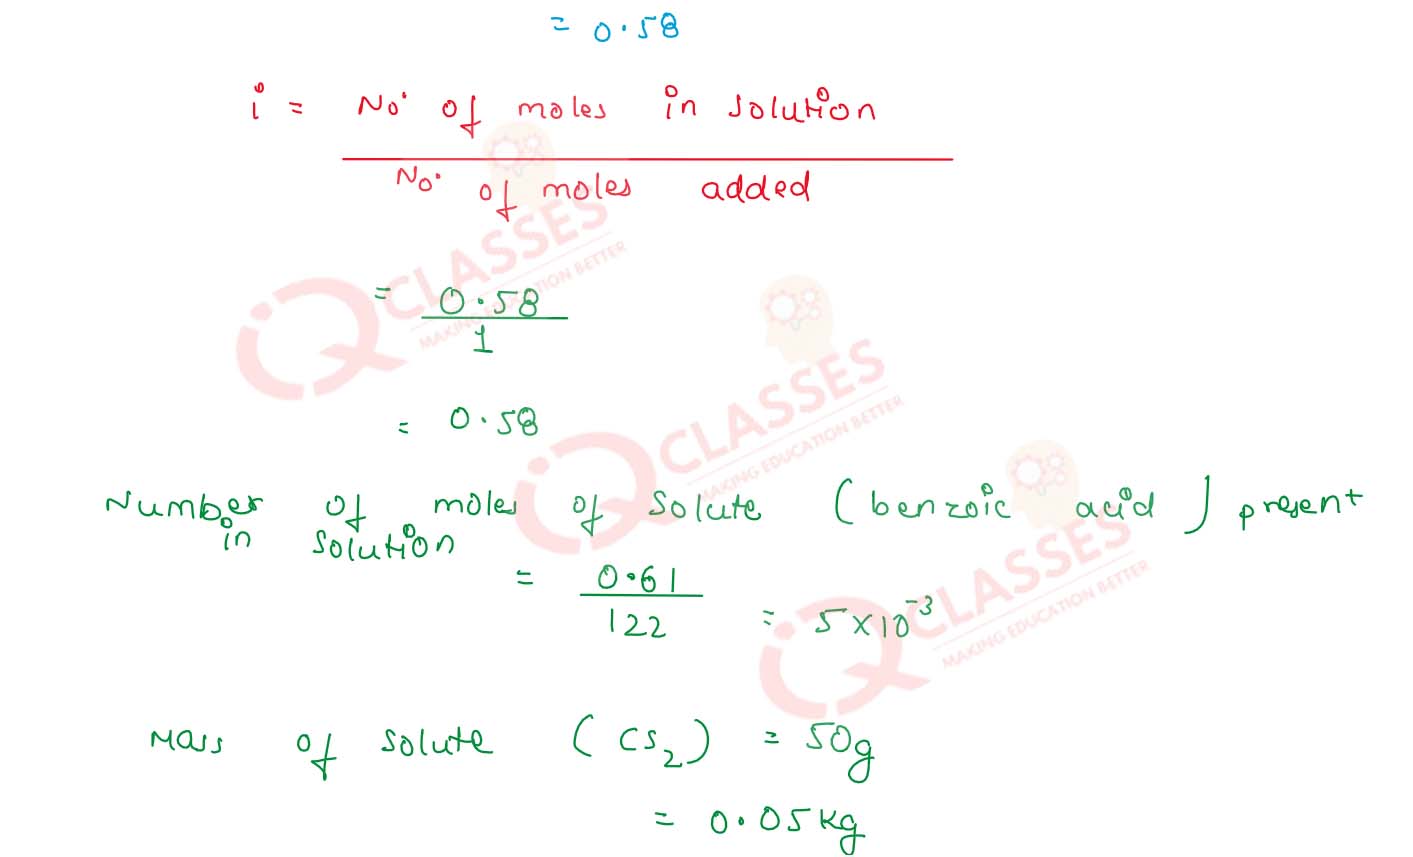 = 0.58
i = No. of moles in solution
No. of moles added
= 0.58
1
= 0.58
Number of moles of solute (benzoic acid) present
in solution
= 0.61
122
= 5×10⁻³
Mass of solute (CS₂) = 50g
= 0.05kg
IQ CLASSES
MAKING EDUCATION BETTER
IQ CLASSES
MAKING EDUCATION BETTER
IQ CLASSES
MAKING EDUCATION BETTER